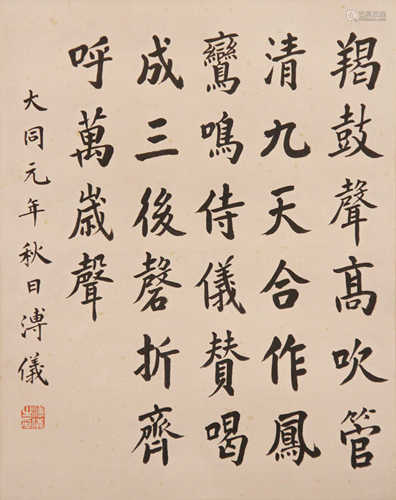 羯鼓聲高吹管
清九天合作鳳
鸞鳴侍儀贊喝
成三後磬折齊
呼萬歲聲
大同元年秋日溥儀